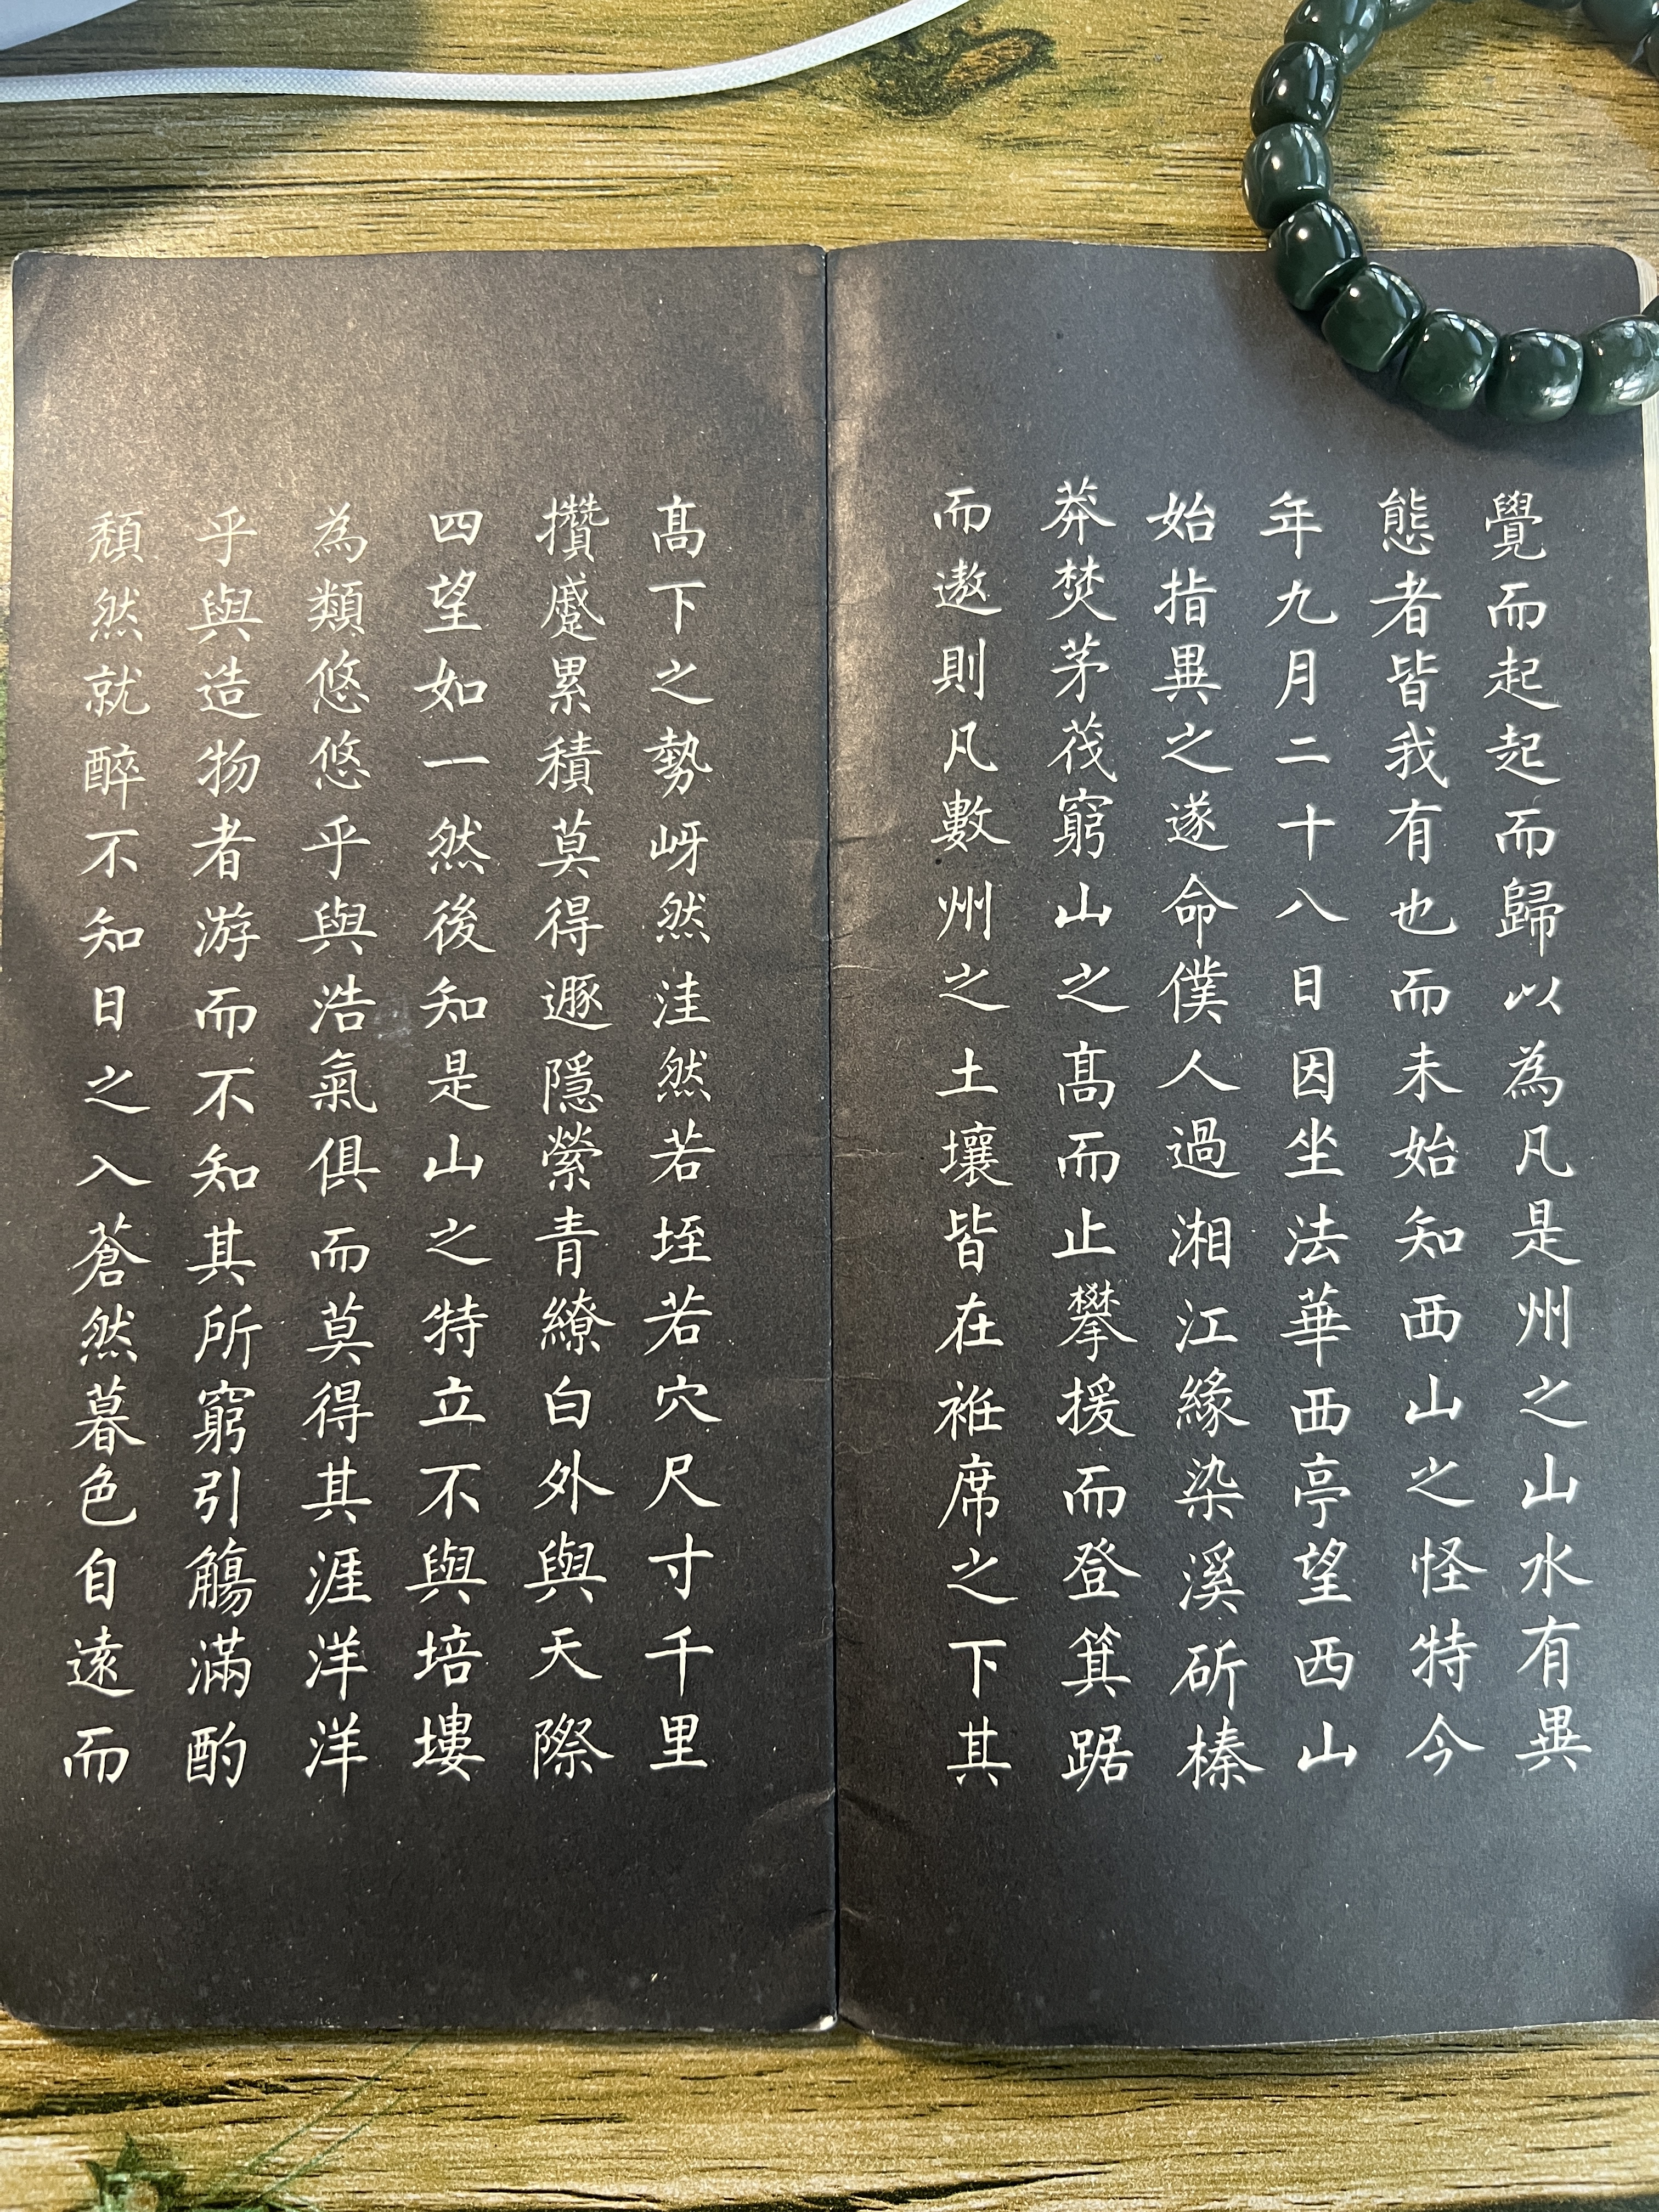 覺而起起而歸以為凡是州之山水有異
態者皆我有也而未始知西山之怪特今
年九月二十八日因坐法華西亭望西山
始指異之遂命僕人過湘江緣染溪斫榛
莽焚茅茷窮山之髙而止攀援而登箕踞
而遨則凡數州之土壤皆在袵席之下其
髙下之勢岈然洼然若垤若穴尺寸千里
攢蹙累積莫得遯隱縈青繚白外與天際
四望如一然後知是山之特立不與培塿
為類悠悠乎與浩氣俱而莫得其涯洋洋
乎與造物者游而不知其所窮引觴滿酌
頹然就醉不知日之入蒼然暮色自遠而